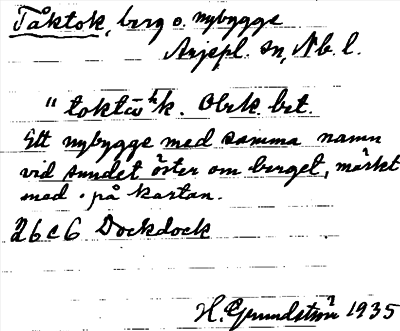 Tåktok, berg o. nybygge
Arjepl. sn, Nb. l.
"toktω̄ʰk. Obek. bet.
Ett nybygge med samma namn
vid sundet öster om berget, märkt
med · på kartan.
26c6 Dockdock
H. Grundström 1935